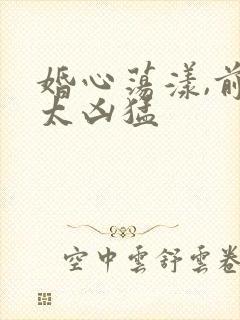 婚心荡漾,前
太凶猛
空中雲舒雲卷